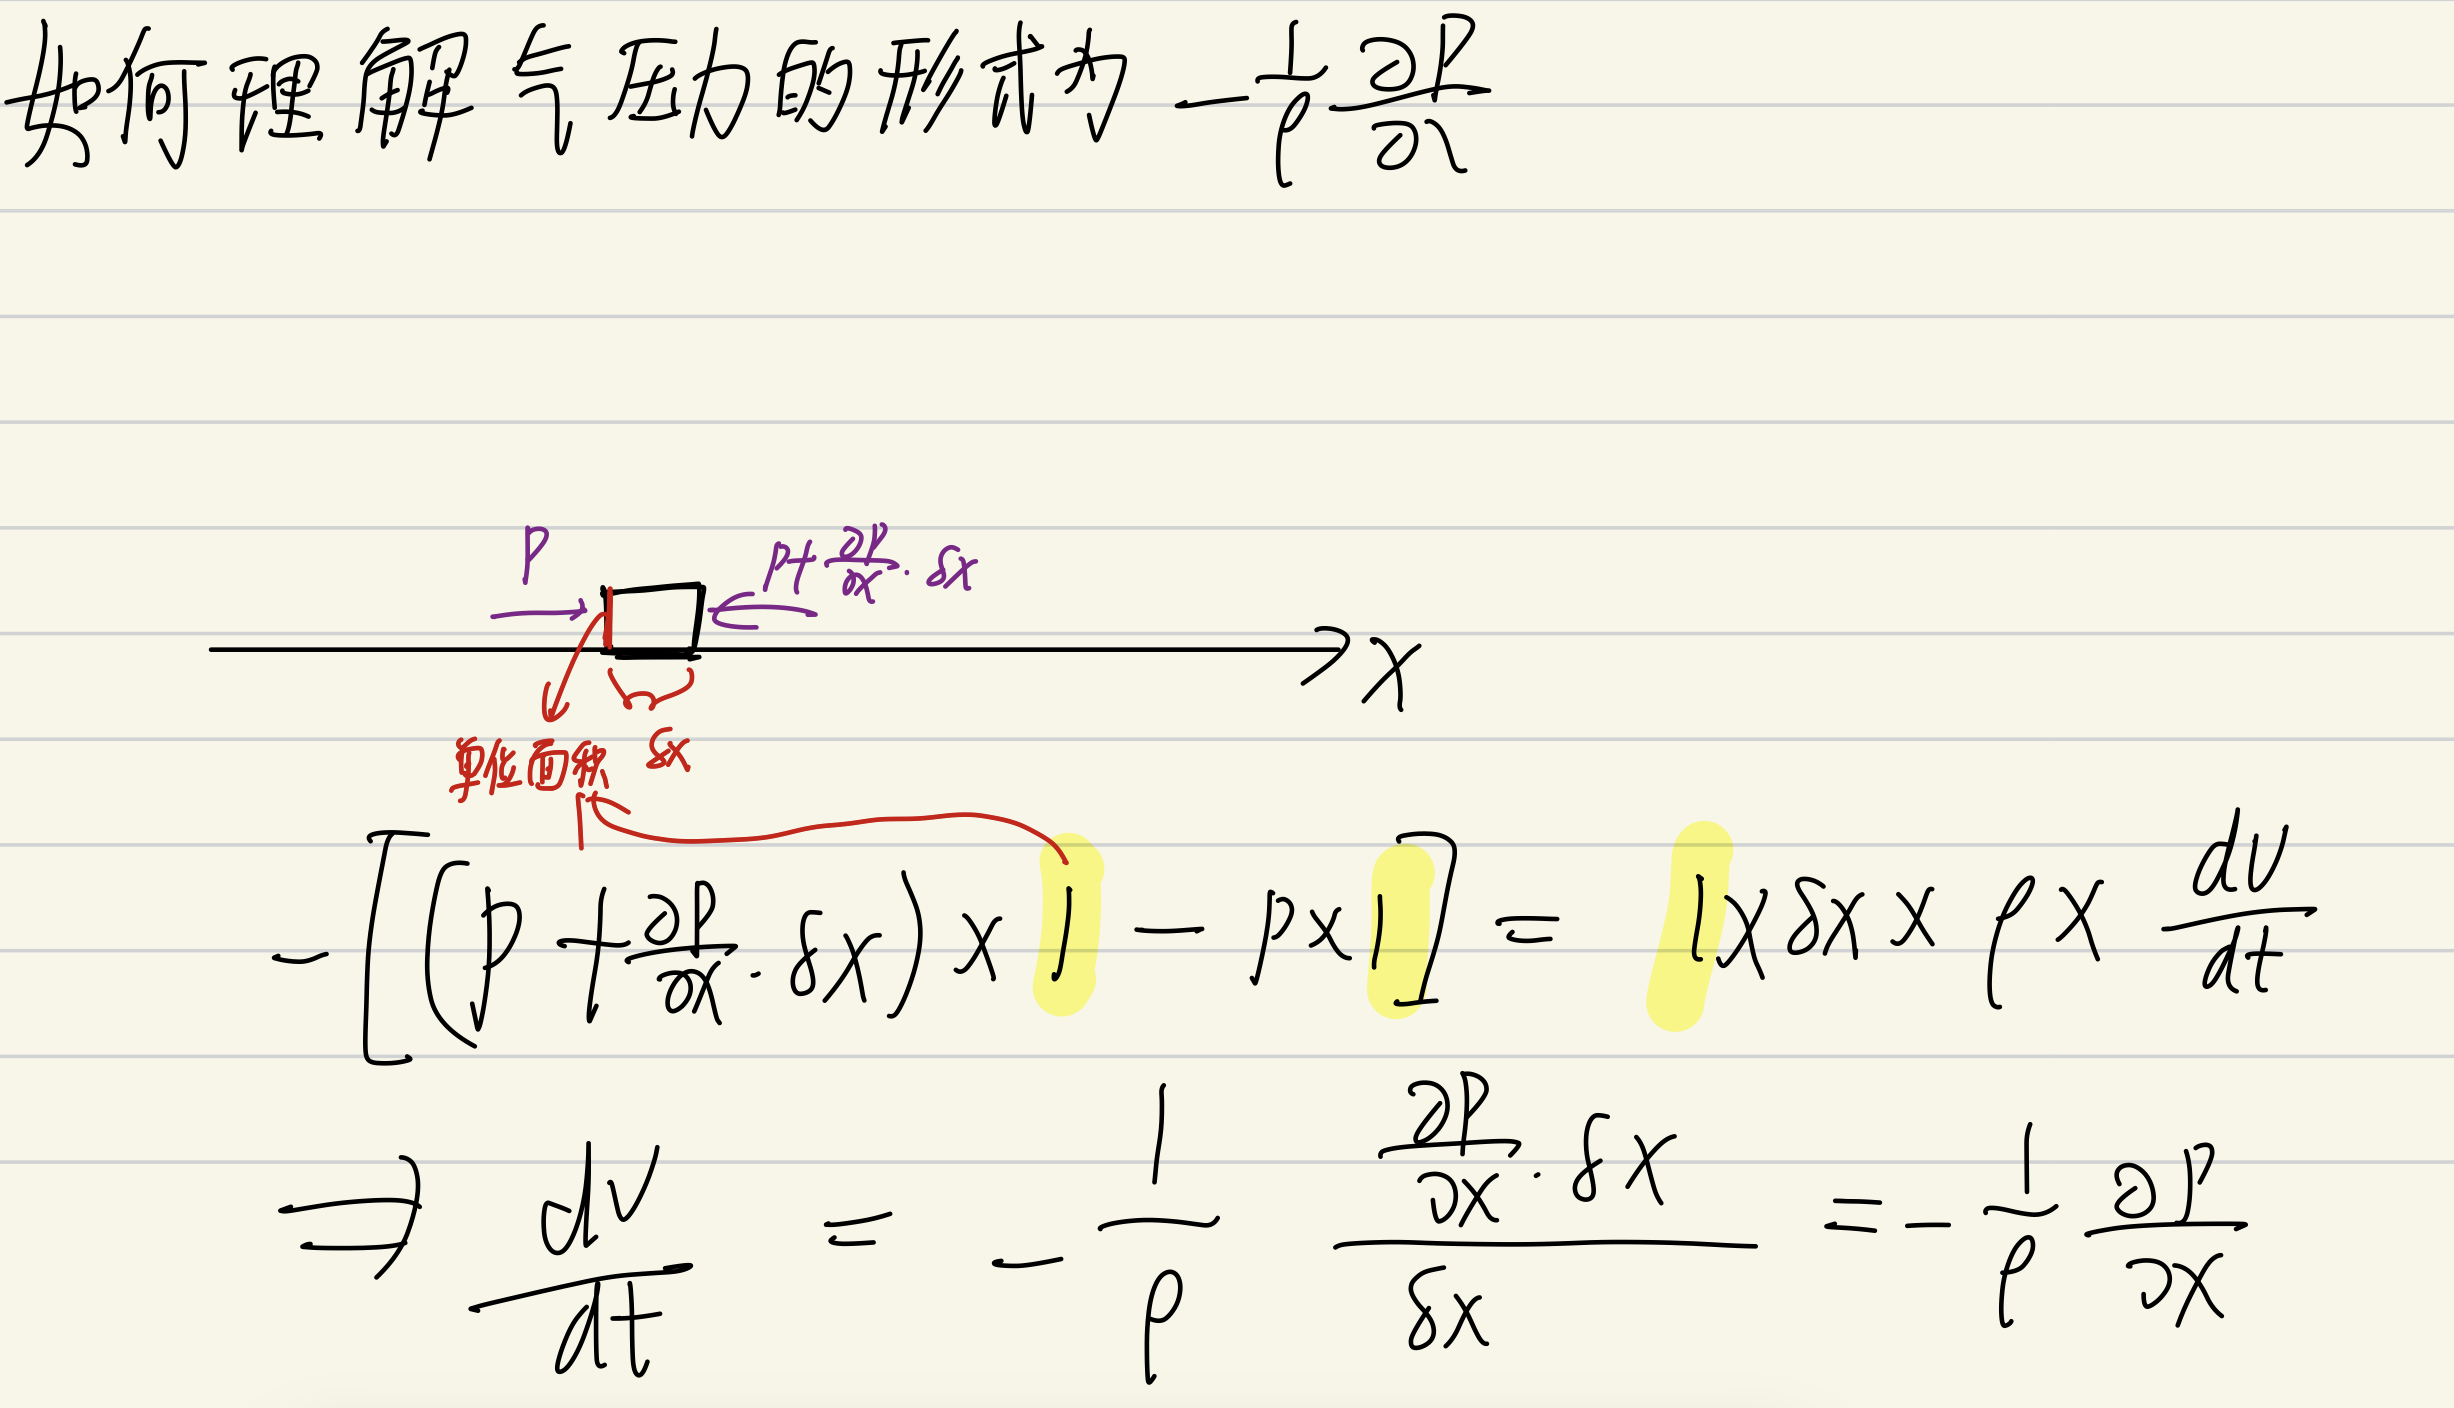 如何理解气压力的形式为 -1/ρ ∂P/∂x
P
P+∂P/∂x·δx
x
单位面积 δx
-[(P+∂P/∂x·δx)×1-P×1]=1×δx×ρ×dv/dt
⇒ dv/dt = -1/ρ (∂P/∂x·δx)/δx = -1/ρ ∂P/∂x